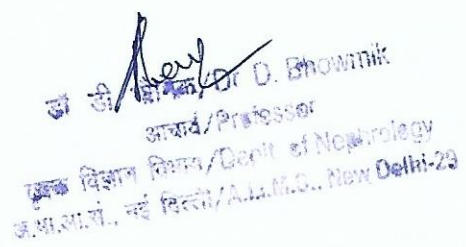 डॉ डी /Dr D. Bhowmik
आचार्य/Professor
वृक्क विज्ञान विभाग/Deptt of Nephrology
अ.भा.आ.सं., नई दिल्ली/A.I.I.M.S., New Delhi-29